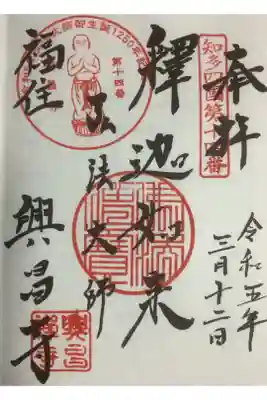 奉拝
知多四國第十四番
令和五年
三月十二日
釋迦如来
弘法大師
大師御生誕1250年
第十四番
佛法僧寶
福住
興昌寺
興昌